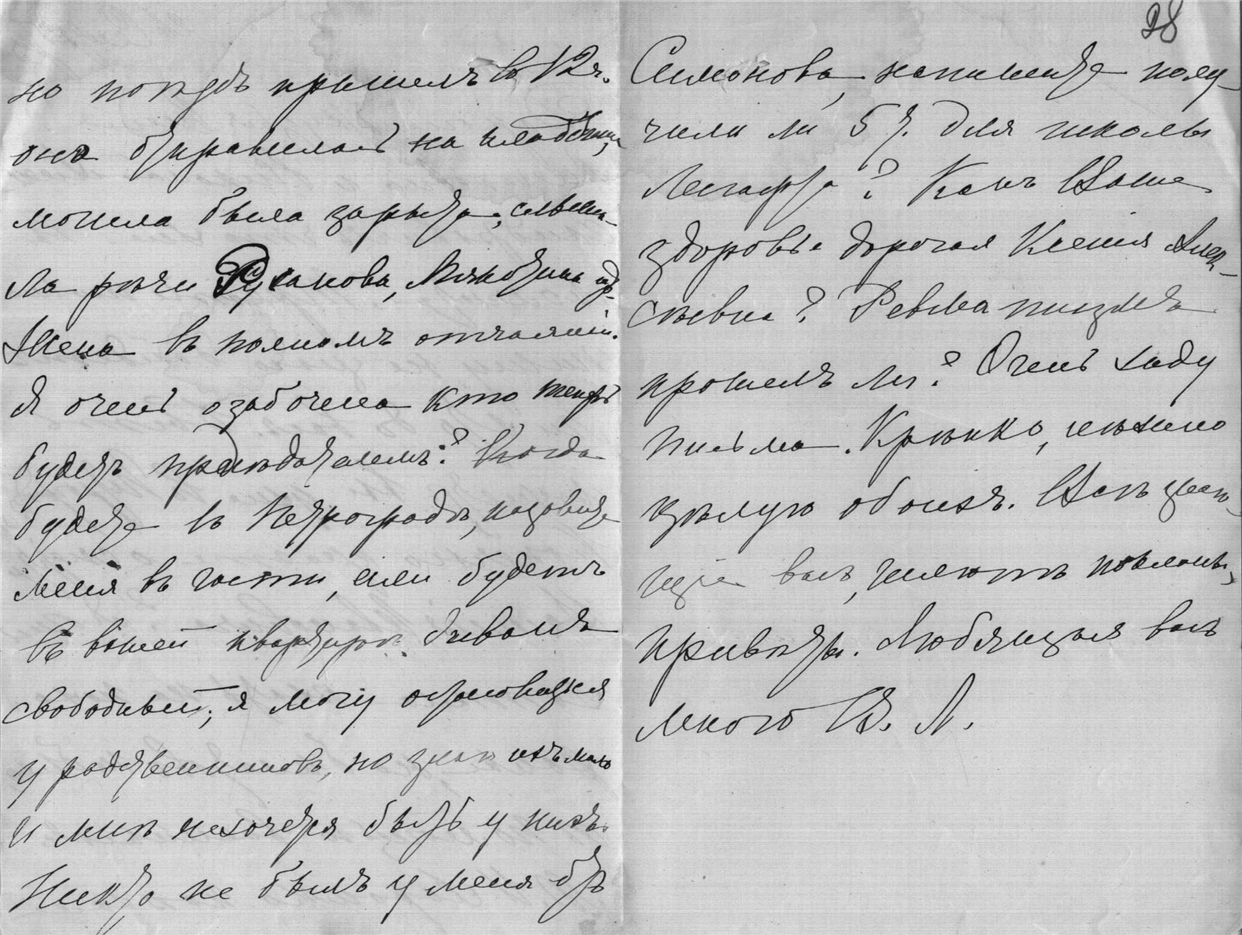 но поѣздъ пришелъ въ 12 ч.
она отправилась на кладбище,
могила была зарыта, слыша-
ла рѣчи Русанова,
Жена въ полномъ отчаяніи.
Я очень озабочена кто теперь
будетъ предсѣдателемъ? Когда
будете въ Петроградѣ, позовите
меня въ гости, если будетъ
въ вашей квартирѣ диванъ
свободный, я могу остановиться
у родственниковъ, но знаю ихъ мало
и мнѣ не хочется быть у нихъ.
Никто не былъ у меня отъ
28
Симонова, напишите полу-
чили ли 5 р. для школы
Лесгафта? Какъ Ваше
здоровье дорогая Ксенія Алек-
сѣевна? Ревматизмъ
прошелъ ли? Очень жду
письма. Крѣпко, нѣжно
цѣлую обоихъ. Всѣ знаю-
щіе васъ, шлютъ поклоны,
привѣты. Любящая васъ
много В. Л.